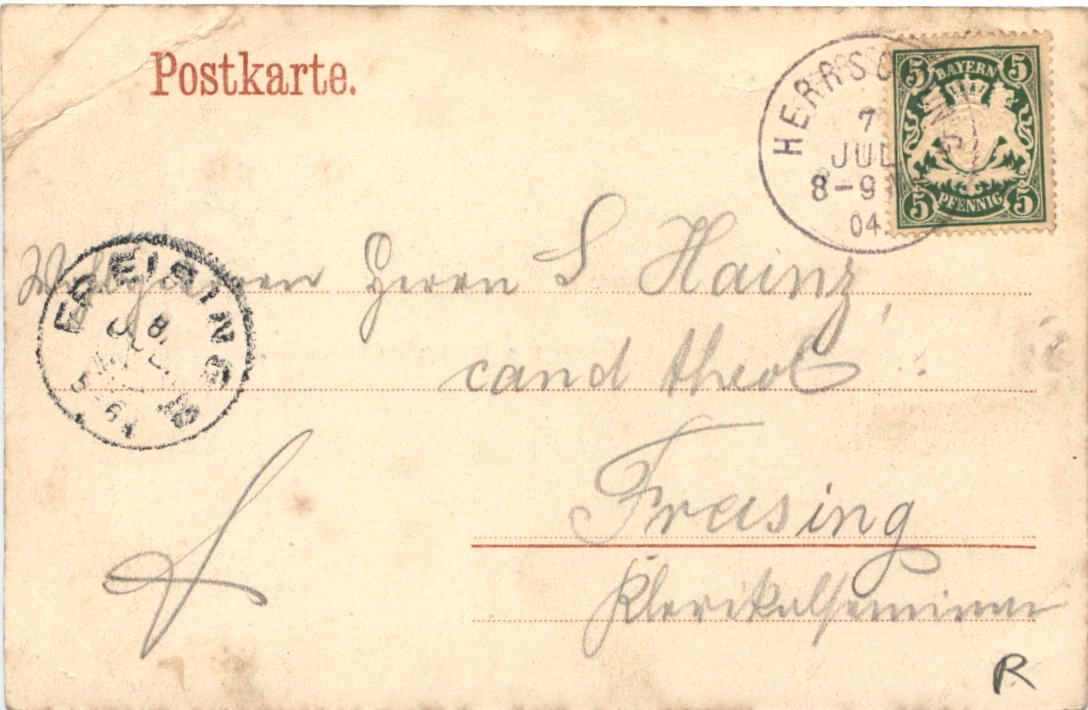 Postkarte.
5 BAYERN 5
5 PFENNIG 5
HERRSC
7
JUL
8-9
04.
FREISING
8.
JUL
5-6
Herrn L Hainz,
cand theol
Freising
Klerikalseminar
R